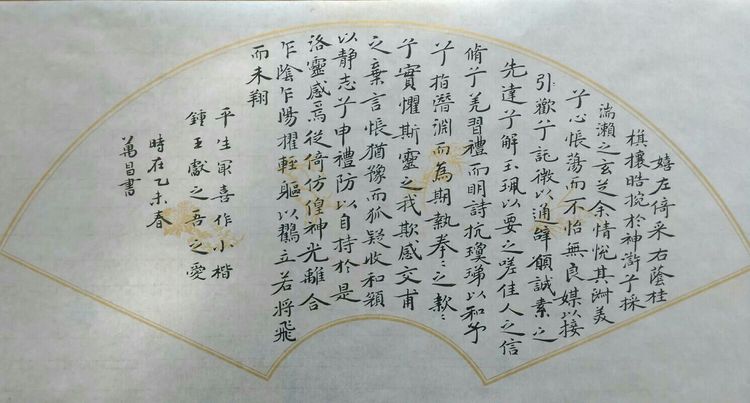 嬉左倚采右蔭桂
旗攘晧捥於神滸兮採
湍瀨之玄芝余情悅其淑美
兮心悵蕩而不怡無良媒以接
引歡兮託微以通辭願誠素之
先達兮解玉珮以要之嗟佳人之信
脩兮羌習禮而明詩抗瓊珶以和予
兮指潛淵而為期執拳〻之款〻
兮實懼斯靈之我欺感交甫
之棄言悵猶豫而狐疑收和顏
以静志兮申禮防以自持於是
洛靈感焉徙倚仿偟神光離合
乍陰乍陽擢輕軀以鶴立若將飛
而未翔
平生最喜作小楷
鍾王獻之吾之愛
時在乙未春
萬昌書